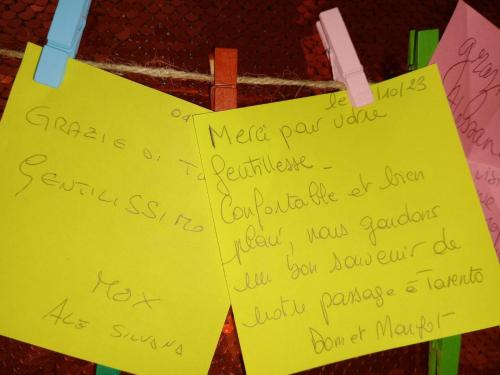 GRAZIE DI
GENTILISSIMO
MAX
ALE SILVANA
le /10/23
Merci pour votre
gentillesse _
Confortable et bien
placé, nous gardons
un bon souvenir de
notre passage à Tarento
Dom et